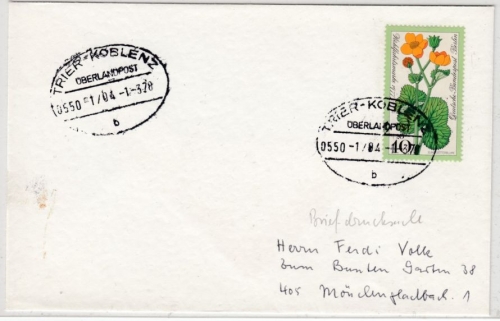 TRIER-KOBLENZ
OBERLANDPOST
0550-1/04 -1-378
b
Deutsche Bundespost Berlin
Wohlfahrtsmarke
TRIER-KOBLENZ
OBERLANDPOST
0550-1/04
b
Briefdrucksache
Herrn Ferdi Volk
Zum Bunten Garten 38
405 Mönchengladbach. 1